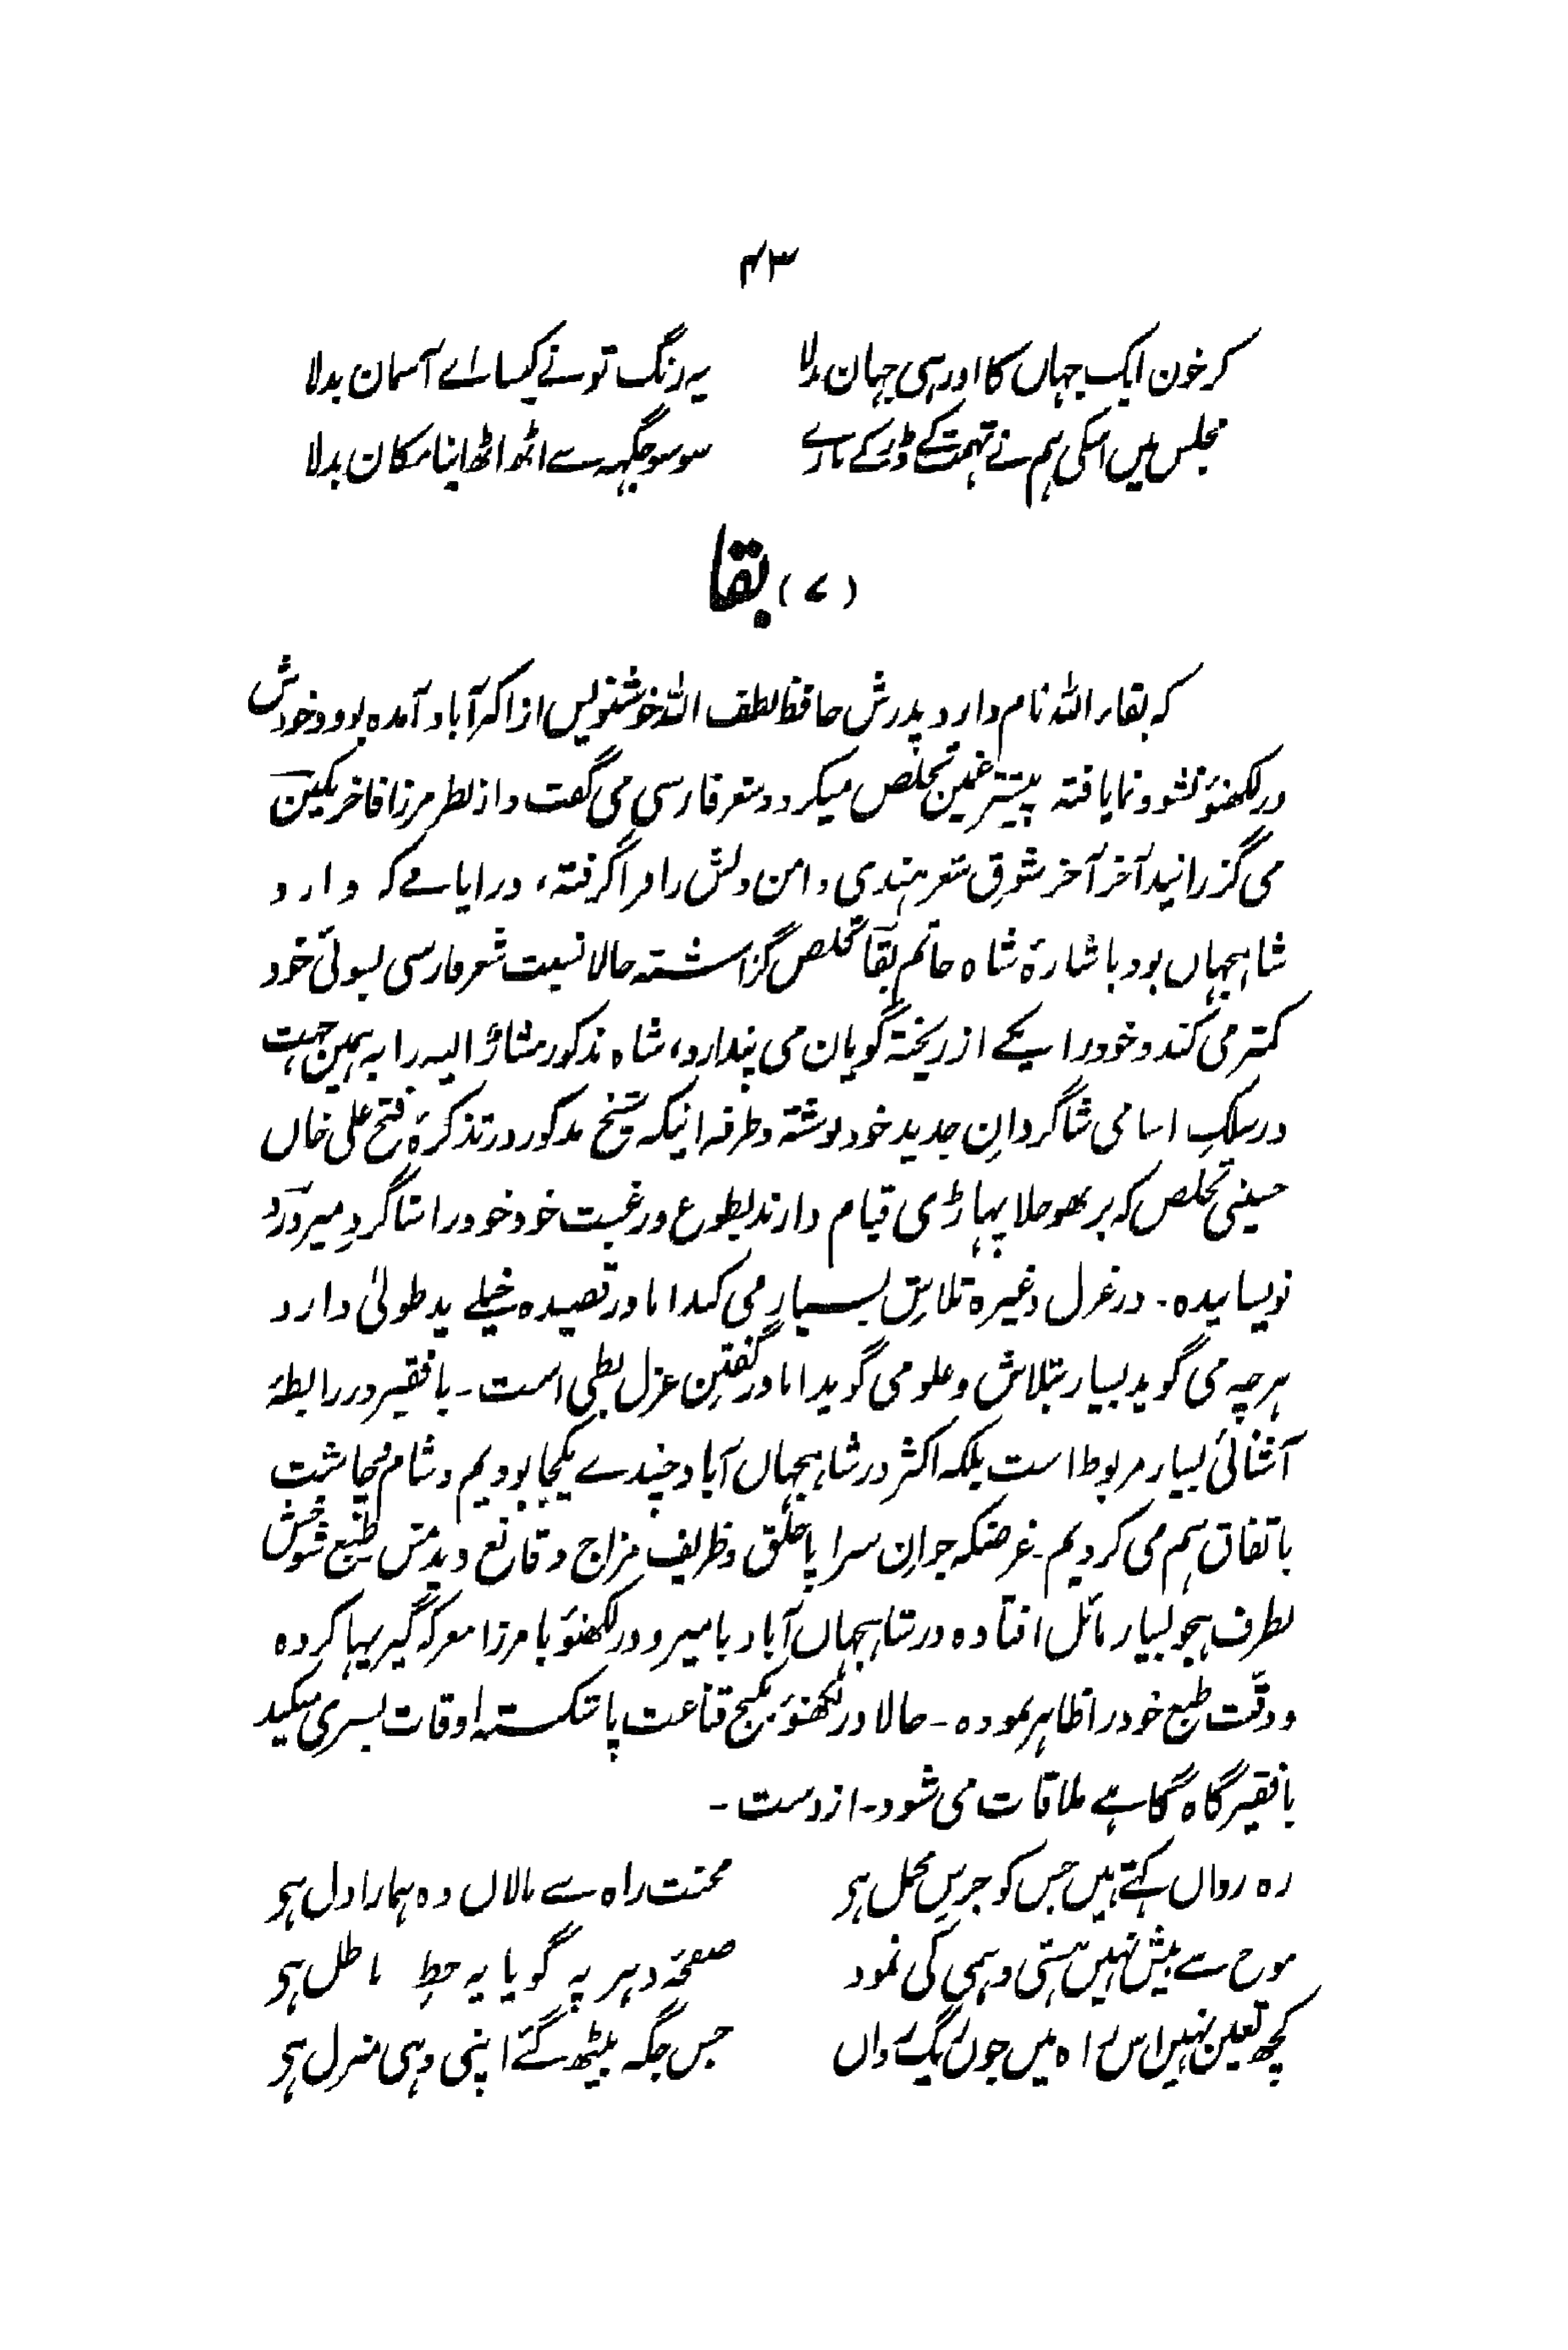 ۴۳
کر خون ایک جہاں کا اور ہی جہان بدلا یہ رنگ تو نے کیسا اے آسمان بدلا
مجلس میں اسکی ہم نے تہمت کے ڈر کے مارے سو سو جگہہ سے اٹھ اٹھ اپنا مکان بدلا
(۷) بقا
کہ بقاء اللہ نام دارد پدرش حافظ لطف اللہ خوشنویس از اکبرآباد آمدہ بود و خودش
در لکھنؤ نشو و نما یافتہ پیشتر غمین تخلص میکرد و شعر فارسی می گفت و از نظر مرزا فاخر مکین
می گزرانید آخر آخر شوقِ شعر ہندی دامن دلش را فرا گرفتہ، در ایامے کہ وارد
شاہجہاں بود باشارۂ شاہ حاتم بقا تخلص گزاشتہ حالا نسبت شعر فارسی بسوئی خود
کمتر می کند و خود را یکے از ریختہ گویان می پندارد، شاہ مذکور مشارٌ الیہ را بہ ہمین جہت
در سلکِ اسامی شاگردانِ جدید خود نوشتہ و طرفہ اینکہ شیخ مذکور در تذکرۂ فتح علی خاں
حسینی تخلص کہ بر بھوجلا پہاڑی قیام دارند بطوع و رغبت خود خود را شاگردِ میر درد
نویسانیدہ ۔ در غزل و غیرہ تلاش بسیار می کند اما در قصیدہ خیلے ید طولیٰ دارد
ہر چہ می گوید بسیار بتلاش و علو می گوید اما در گفتنِ غزل بطی است ۔ با فقیر در رابطۂ
آشنائی بسیار مربوط است بلکہ اکثر در شاہجہاں آباد چندے یکجا بودیم و شام و چاشت
باتفاق ہم می کردیم ۔ غرضکہ جوانِ سراپا خلق و ظریف مزاج و قانع دیدمش طبع شوخش
بطرف ہجو بسیار مائل افتادہ در شاہجہاں آباد با میر و در لکھنؤ با مرزا معرکہ گیریہا کردہ
و دقّت طبع خود را ظاہر نمودہ ۔ حالا در لکھنؤ بکنج قناعت پا شکستہ اوقات بسر می کند
با فقیر گاہ گاہے ملاقات می شود ۔ ازوست ۔
رہ رواں کہتے ہیں جس کو جرسِ محمل ہی محنت راہ سے نالاں وہ ہمارا دل ہی
موج سے بیش نہیں ہستی وہمی کی نمود صفحۂ دہر پہ گویا یہ خطِ باطل ہی
کچھ تعین نہیں اس راہ میں جوں ریگِ رواں جس جگہ بیٹھ گئے اپنی وہی منزل ہی